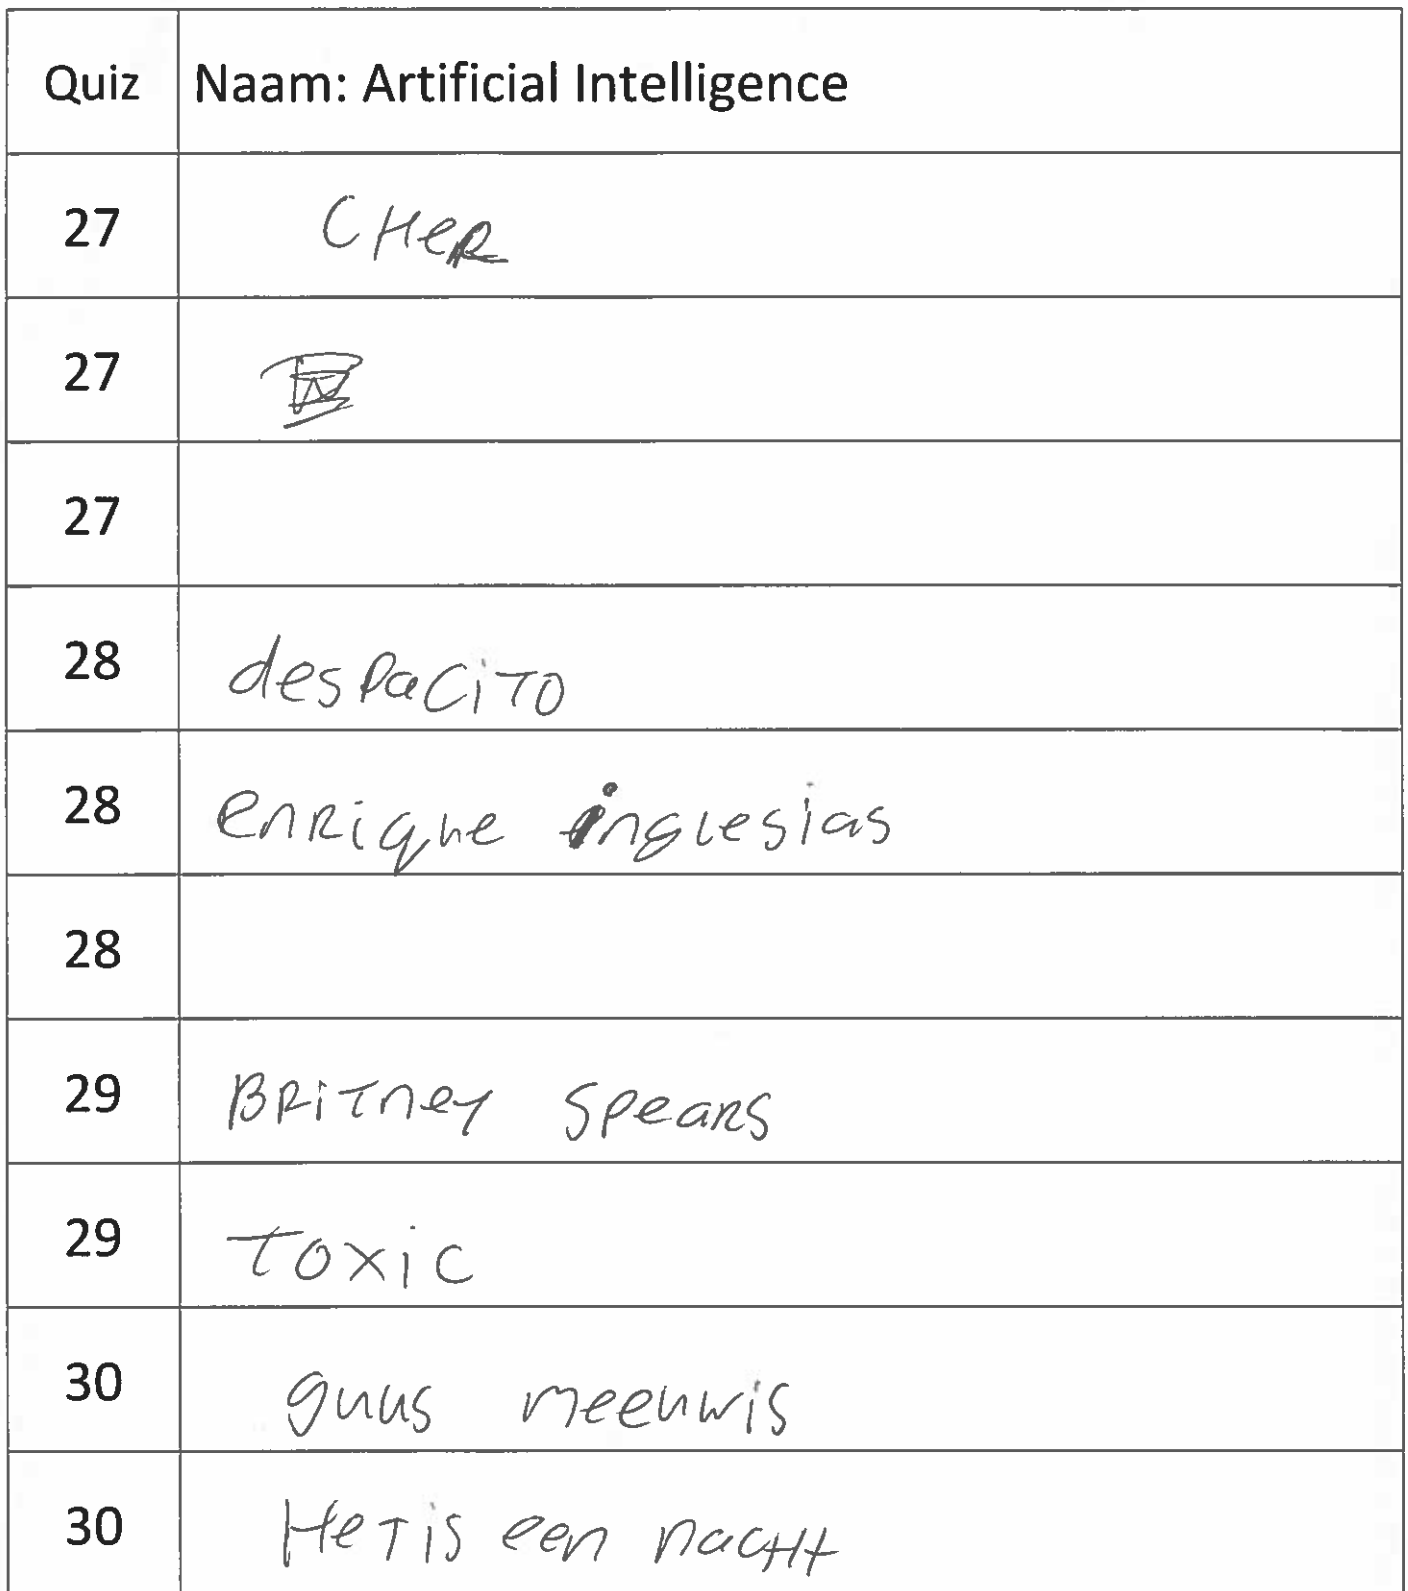 Quiz Naam: Artificial Intelligence
27 CHER
27
27
28 desPaCiTO
28 enRique inglesias
28
29 BRiTney SpeaRS
29 Toxic
30 guus meeuwis
30 HeT is een nacHt